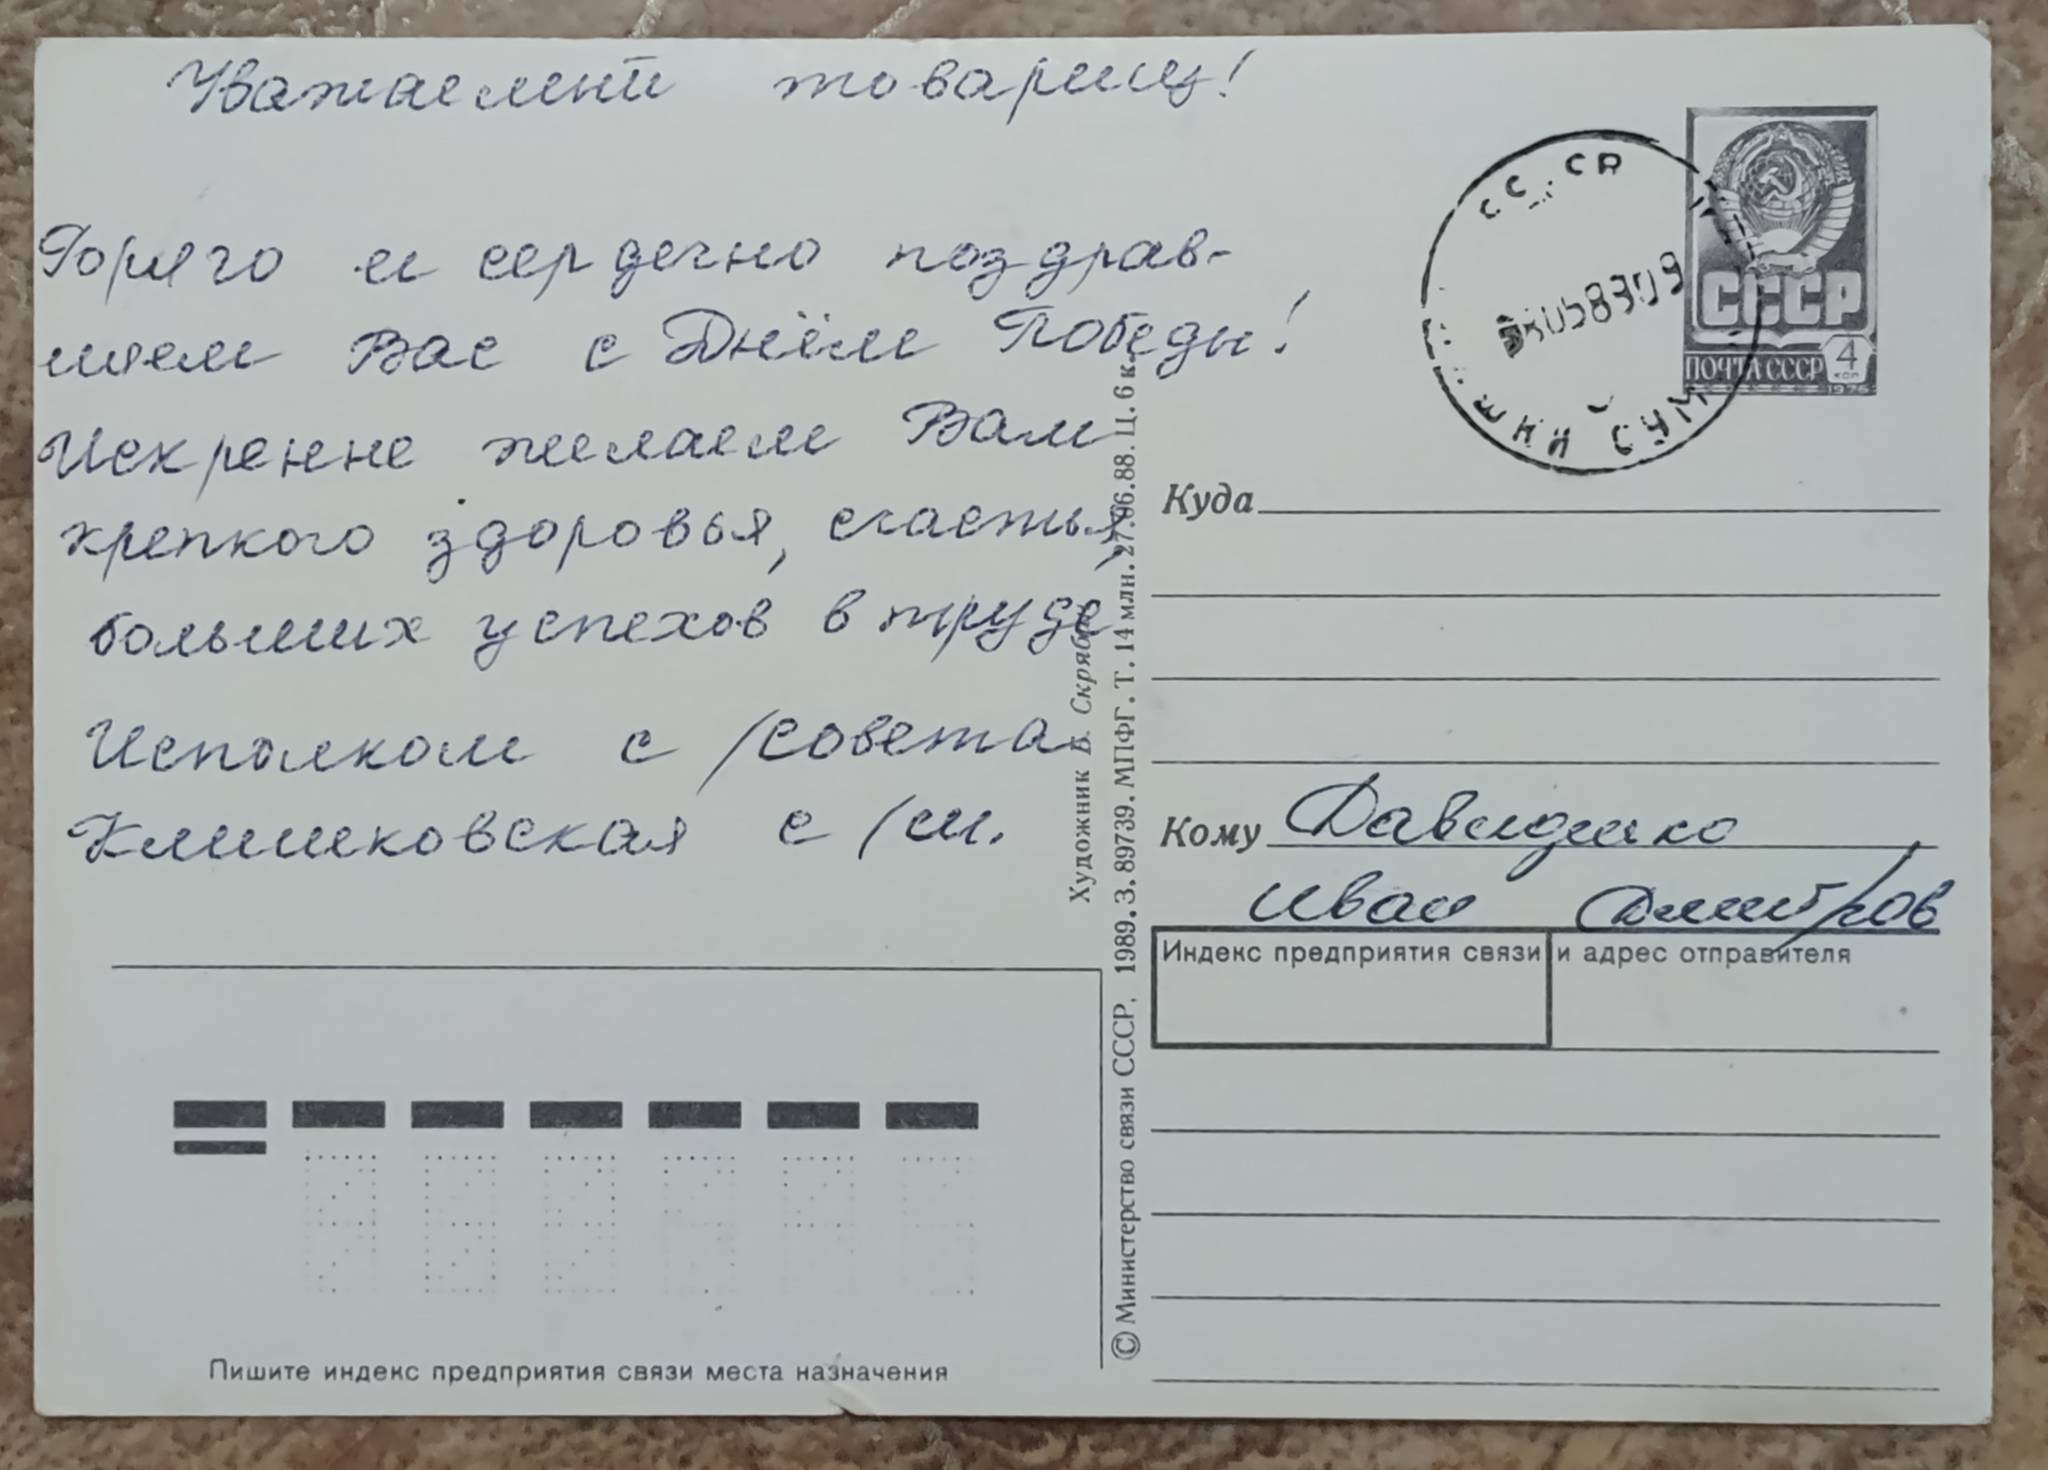 Уважаемый товарищ!
Горяго и сердечно поздрав-
ляем Вас с Днём Победы!
Искренне желаем Вам
крепкого здоровья, счастья,
больших успехов в труде
Исполком с/совета
Клишковская с/ш.
СССР
ПОЧТА СССР
4
коп
1976
Куда
Кому Давидяко
Иван Дмитров
Индекс предприятия связи и адрес отправителя
Художник Б. Скрябин
© Министерство связи СССР. 1989. З. 89739. МПФГ. Т. 14 млн. 27.06.88. Ц. 6 к.
Пишите индекс предприятия связи места назначения